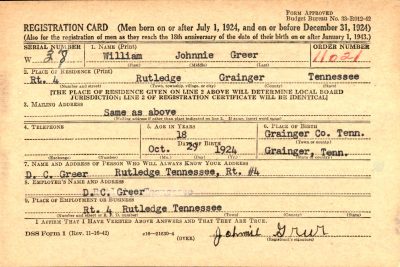 FORM APPROVED
REGISTRATION CARD (Men born on or after July 1, 1924, and on or before December 31, 1924)
(Also for the registration of men as they reach the 18th anniversary of the date of their birth on or after January 1, 1943.)
SERIAL NUMBER 1. NAME (Print) ORDER NUMBER
W 28 William Johnnie Greer 11021
(First) (Middle) (Last)
2. PLACE OF RESIDENCE (Print)
Rt. 4 Rutledge Grainger Tennessee
(Number and street) (Town, township, village, or city) (County) (State)
[THE PLACE OF RESIDENCE GIVEN ON LINE 2 ABOVE WILL DETERMINE LOCAL BOARD
JURISDICTION; LINE 2 OF REGISTRATION CERTIFICATE WILL BE IDENTICAL]
3. MAILING ADDRESS
Same as above
[Mailing address if other than place indicated on line 2. If same insert word same]
4. TELEPHONE 5. AGE IN YEARS 6. PLACE OF BIRTH
18 Grainger Co. Tenn.
DATE OF BIRTH (Town or county)
Oct. 29 1924 Grainger, Tenn.
(Exchange) (Number) (Mo.) (Day) (Yr.) (State or country)
7. NAME AND ADDRESS OF PERSON WHO WILL ALWAYS KNOW YOUR ADDRESS
D. C. Greer Rutledge Tennessee, Rt. #4
8. EMPLOYER'S NAME AND ADDRESS
D. C. Greer
9. PLACE OF EMPLOYMENT OR BUSINESS
Rt. 4 Rutledge Tennessee
(Number and street or R. F. D. number) (Town) (County) (State)
I AFFIRM THAT I HAVE VERIFIED ABOVE ANSWERS AND THAT THEY ARE TRUE.
DSS Form 1 (Rev. 11-16-42) (OVER) Johnnie Greer
(Registrant's signature)